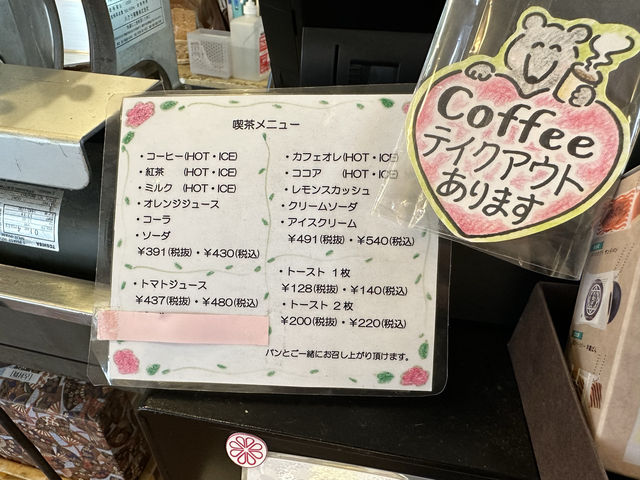 喫茶メニュー
・コーヒー(HOT・ICE)
・紅茶 (HOT・ICE)
・ミルク (HOT・ICE)
・オレンジジュース
・コーラ
・ソーダ
￥391(税抜)・￥430(税込)
・トマトジュース
￥437(税抜)・￥480(税込)
・カフェオレ(HOT・ICE)
・ココア (HOT・ICE)
・レモンスカッシュ
・クリームソーダ
・アイスクリーム
￥491(税抜)・￥540(税込)
・トースト 1枚
￥128(税抜)・￥140(税込)
・トースト 2枚
￥200(税抜)・￥220(税込)
パンとご一緒にお召し上がり頂けます。
Coffee
テイクアウト
あります